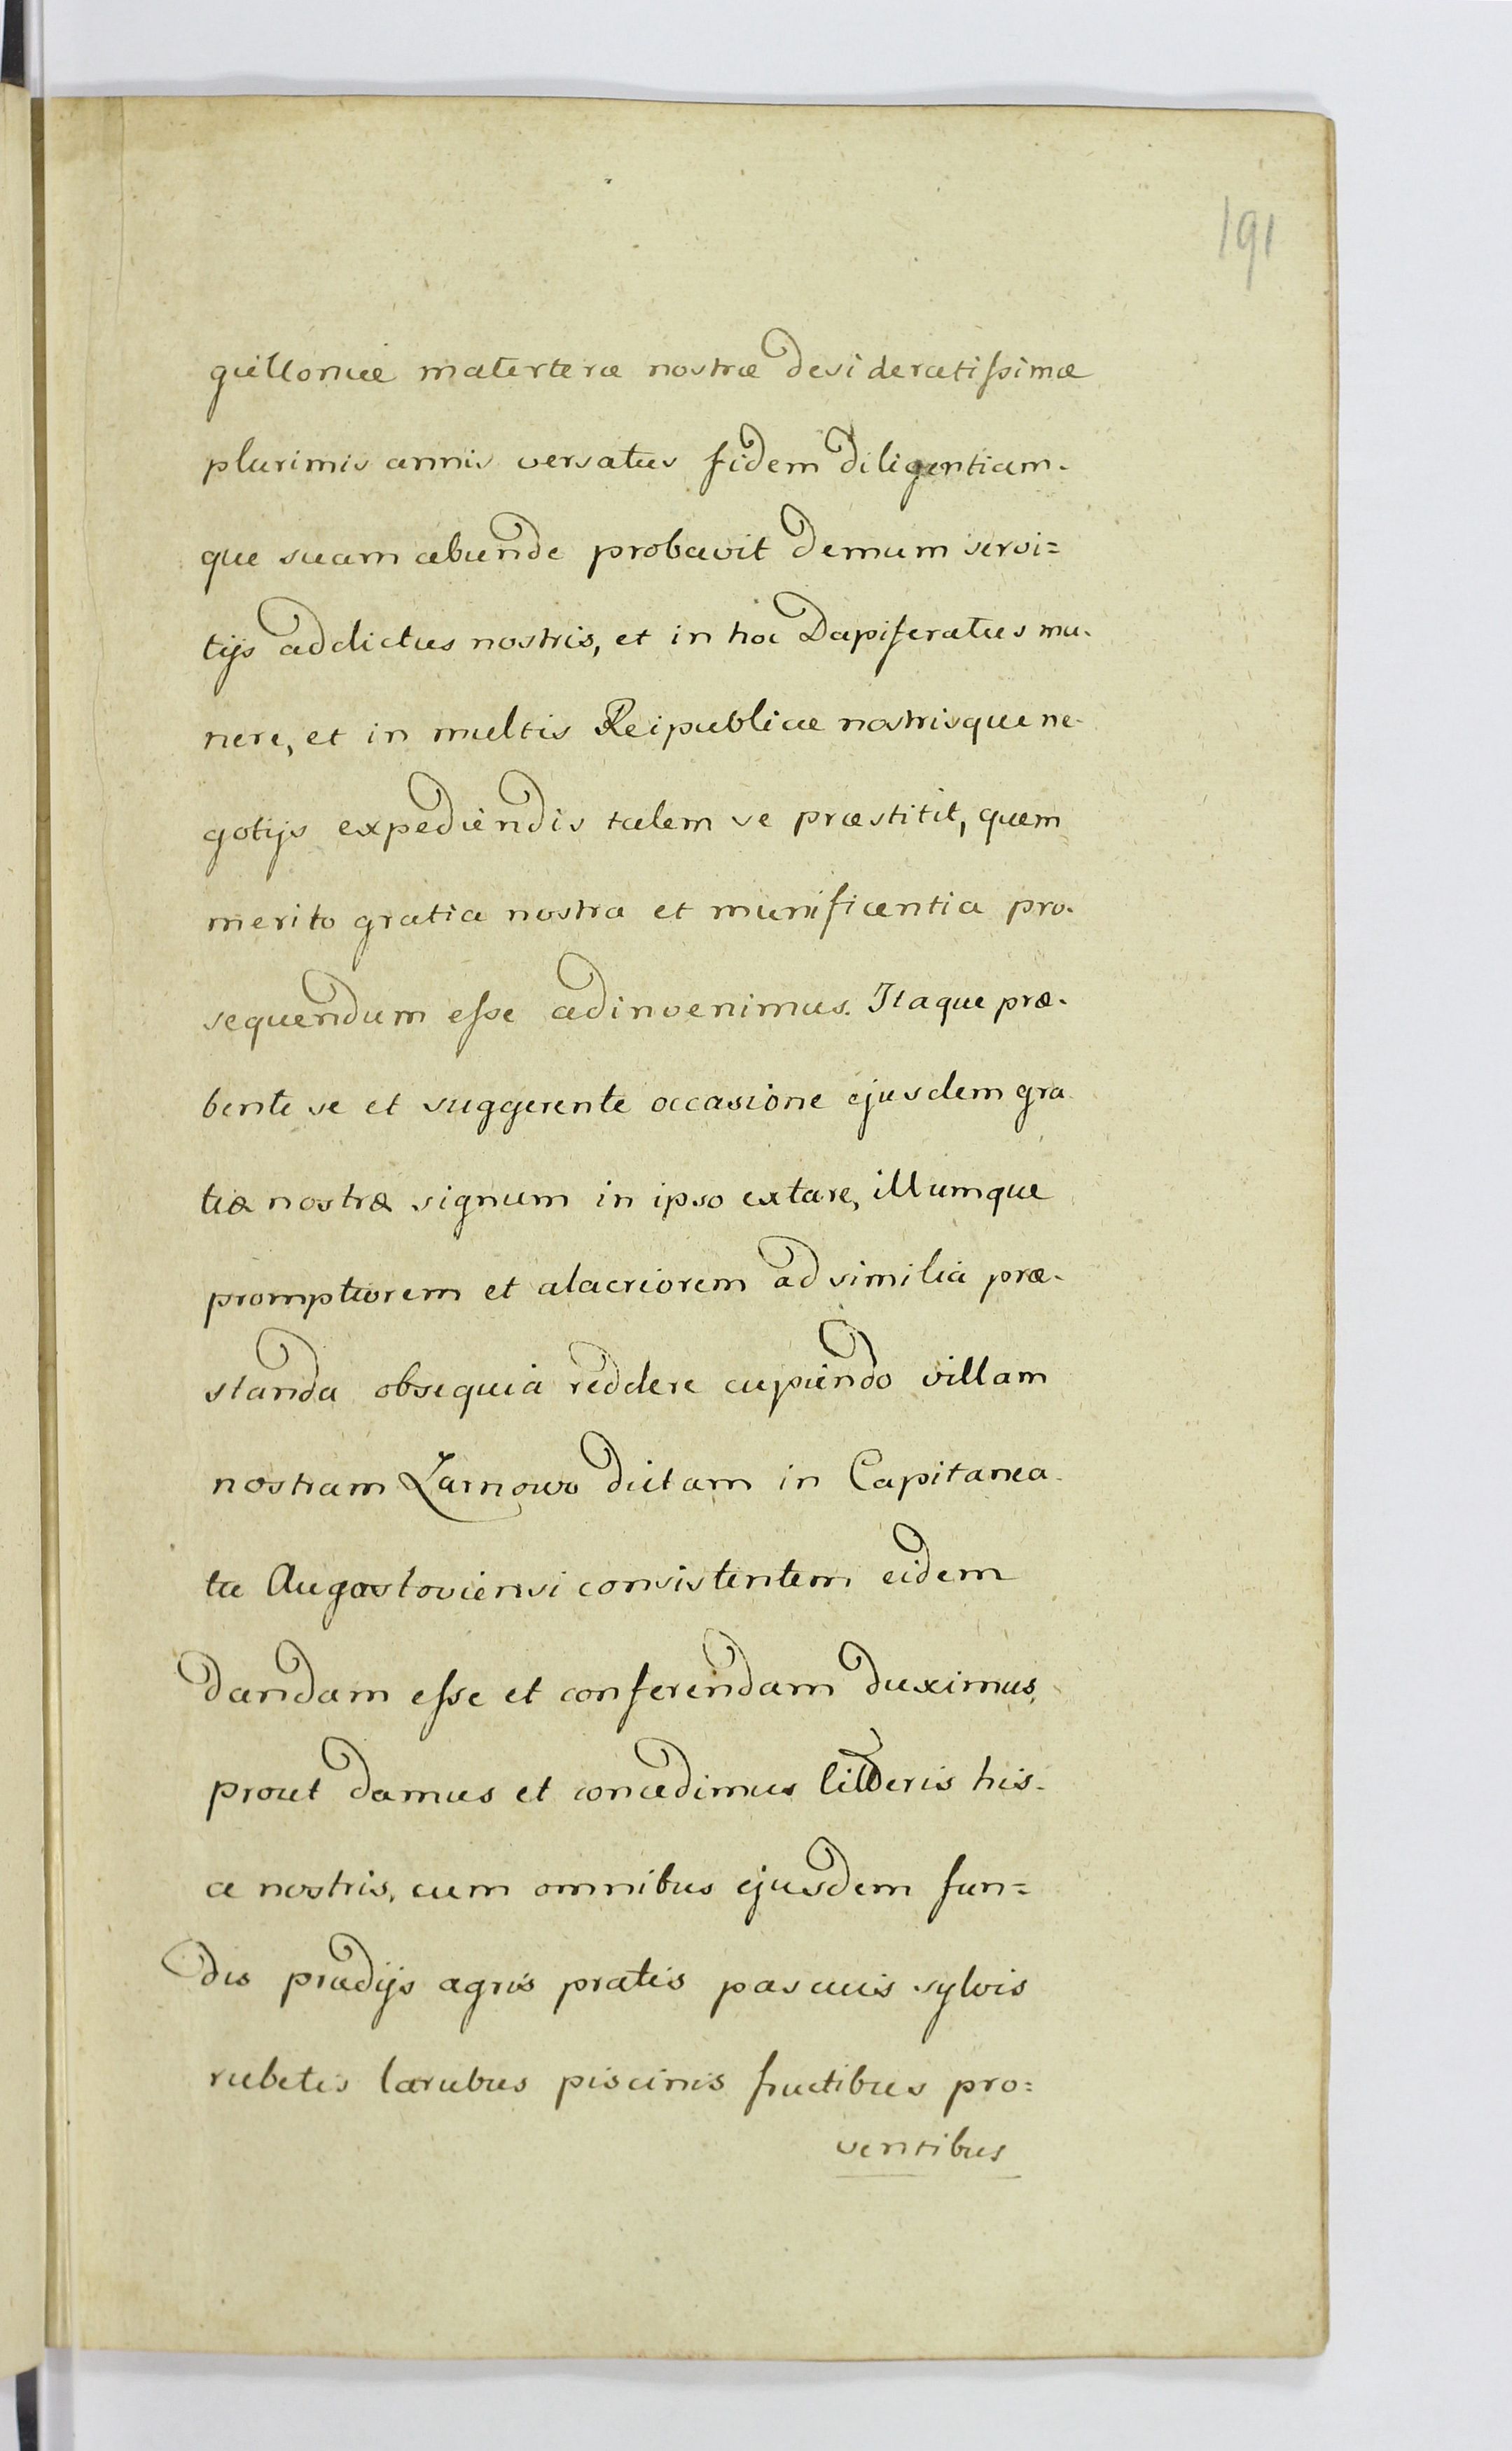 191
guilloniæ materteræ nostræ desideratissimæ
plurimis annis versatus fidem diligentiam-
que suam abunde probavit demum servi=
tijs addictus nostris, et in hoc Dapiferatus mu-
nere, et in multis Reipublicæ nostrisque ne-
gotijs expediendis talem se præstitit, quem
merito gratia nostra et munificentia pro-
sequendum esse adinvenimus. Itaque præ-
bente se et suggerente occasione ejusdem gra-
tiæ nostræ signum in ipso extare, illumque
promptiorem et alacriorem ad similia præ-
standa obsequia reddere cupiendo villam
nostram Żarnowo dictam in Capitanea-
tu Augostoviensi consistentem eidem
dandam esse et conferendam duximus,
prout damus et concedimus litteris his-
ce nostris, cum omnibus ejusdem fun=
dis prædijs agris pratis pascuis sylvis
rubetis lacubus piscinis fructibus pro=
ventibus